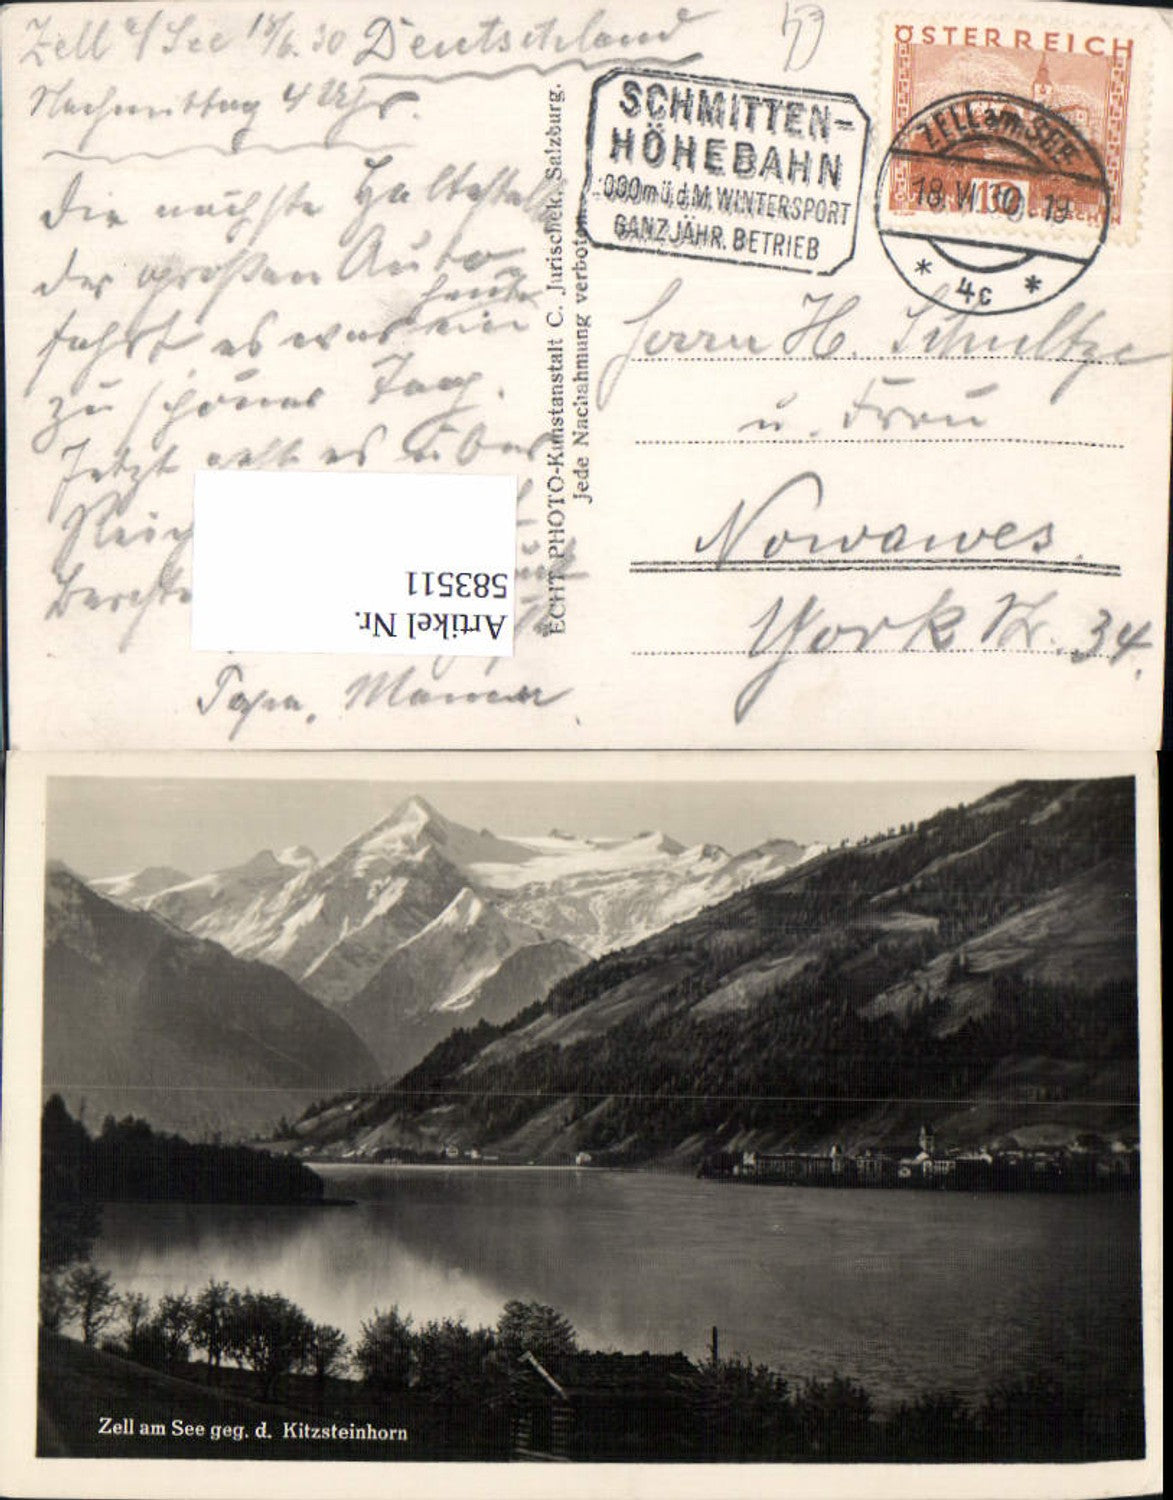 Zell a/See 18/6.30 Deutschland
Nachmittag 4 Uhr.
Die nächste Haltestelle
der großen Auto-
fahrt es war heute ein
zu schöner Tag.
Jetzt geht es über
Papa, Mama
ECHT PHOTO-Kunstanstalt C. Jurischek, Salzburg.
Jede Nachahmung verboten.
SCHMITTEN-
HÖHEBAHN
000m ü.d.M. WINTERSPORT
GANZJÄHR. BETRIEB
ÖSTERREICH
ZELL am SEE
18.VI.30 18
* 4c *
Herrn H. Schultze
u. Frau
Nowawes
York Str. 34.
Artikel Nr.
583511
Zell am See geg. d. Kitzsteinhorn